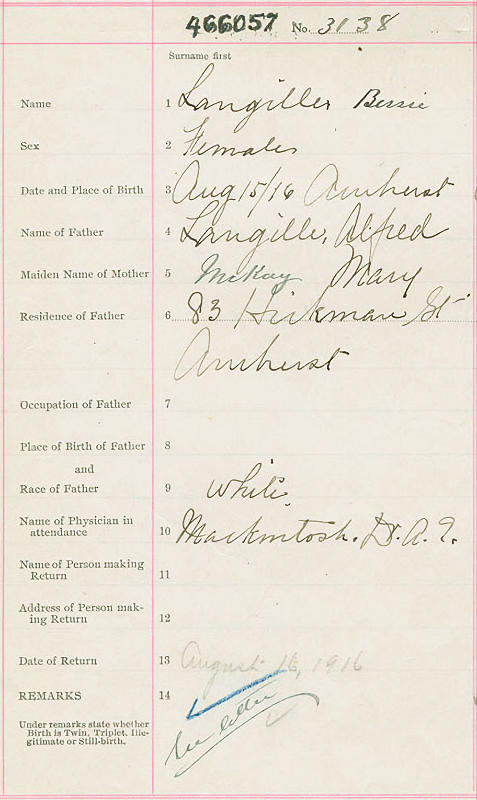 466057 No. 3138
Surname first
Name 1 Langille Bessie
Sex 2 Female
Date and Place of Birth 3 Aug 15/16 Amherst
Name of Father 4 Langille, Alfred
Maiden Name of Mother 5 McKay Mary
Residence of Father 6 83 Hickman St
Amherst
Occupation of Father 7
Place of Birth of Father 8
and
Race of Father 9 White
Name of Physician in
attendance 10 Mackintosh. Dr. A. I.
Name of Person making
Return 11
Address of Person mak-
ing Return 12
Date of Return 13 August 16, 1916
REMARKS 14
Under remarks state whether
Birth is Twin, Triplet, Ille-
gitimate or Still-birth.
see letter